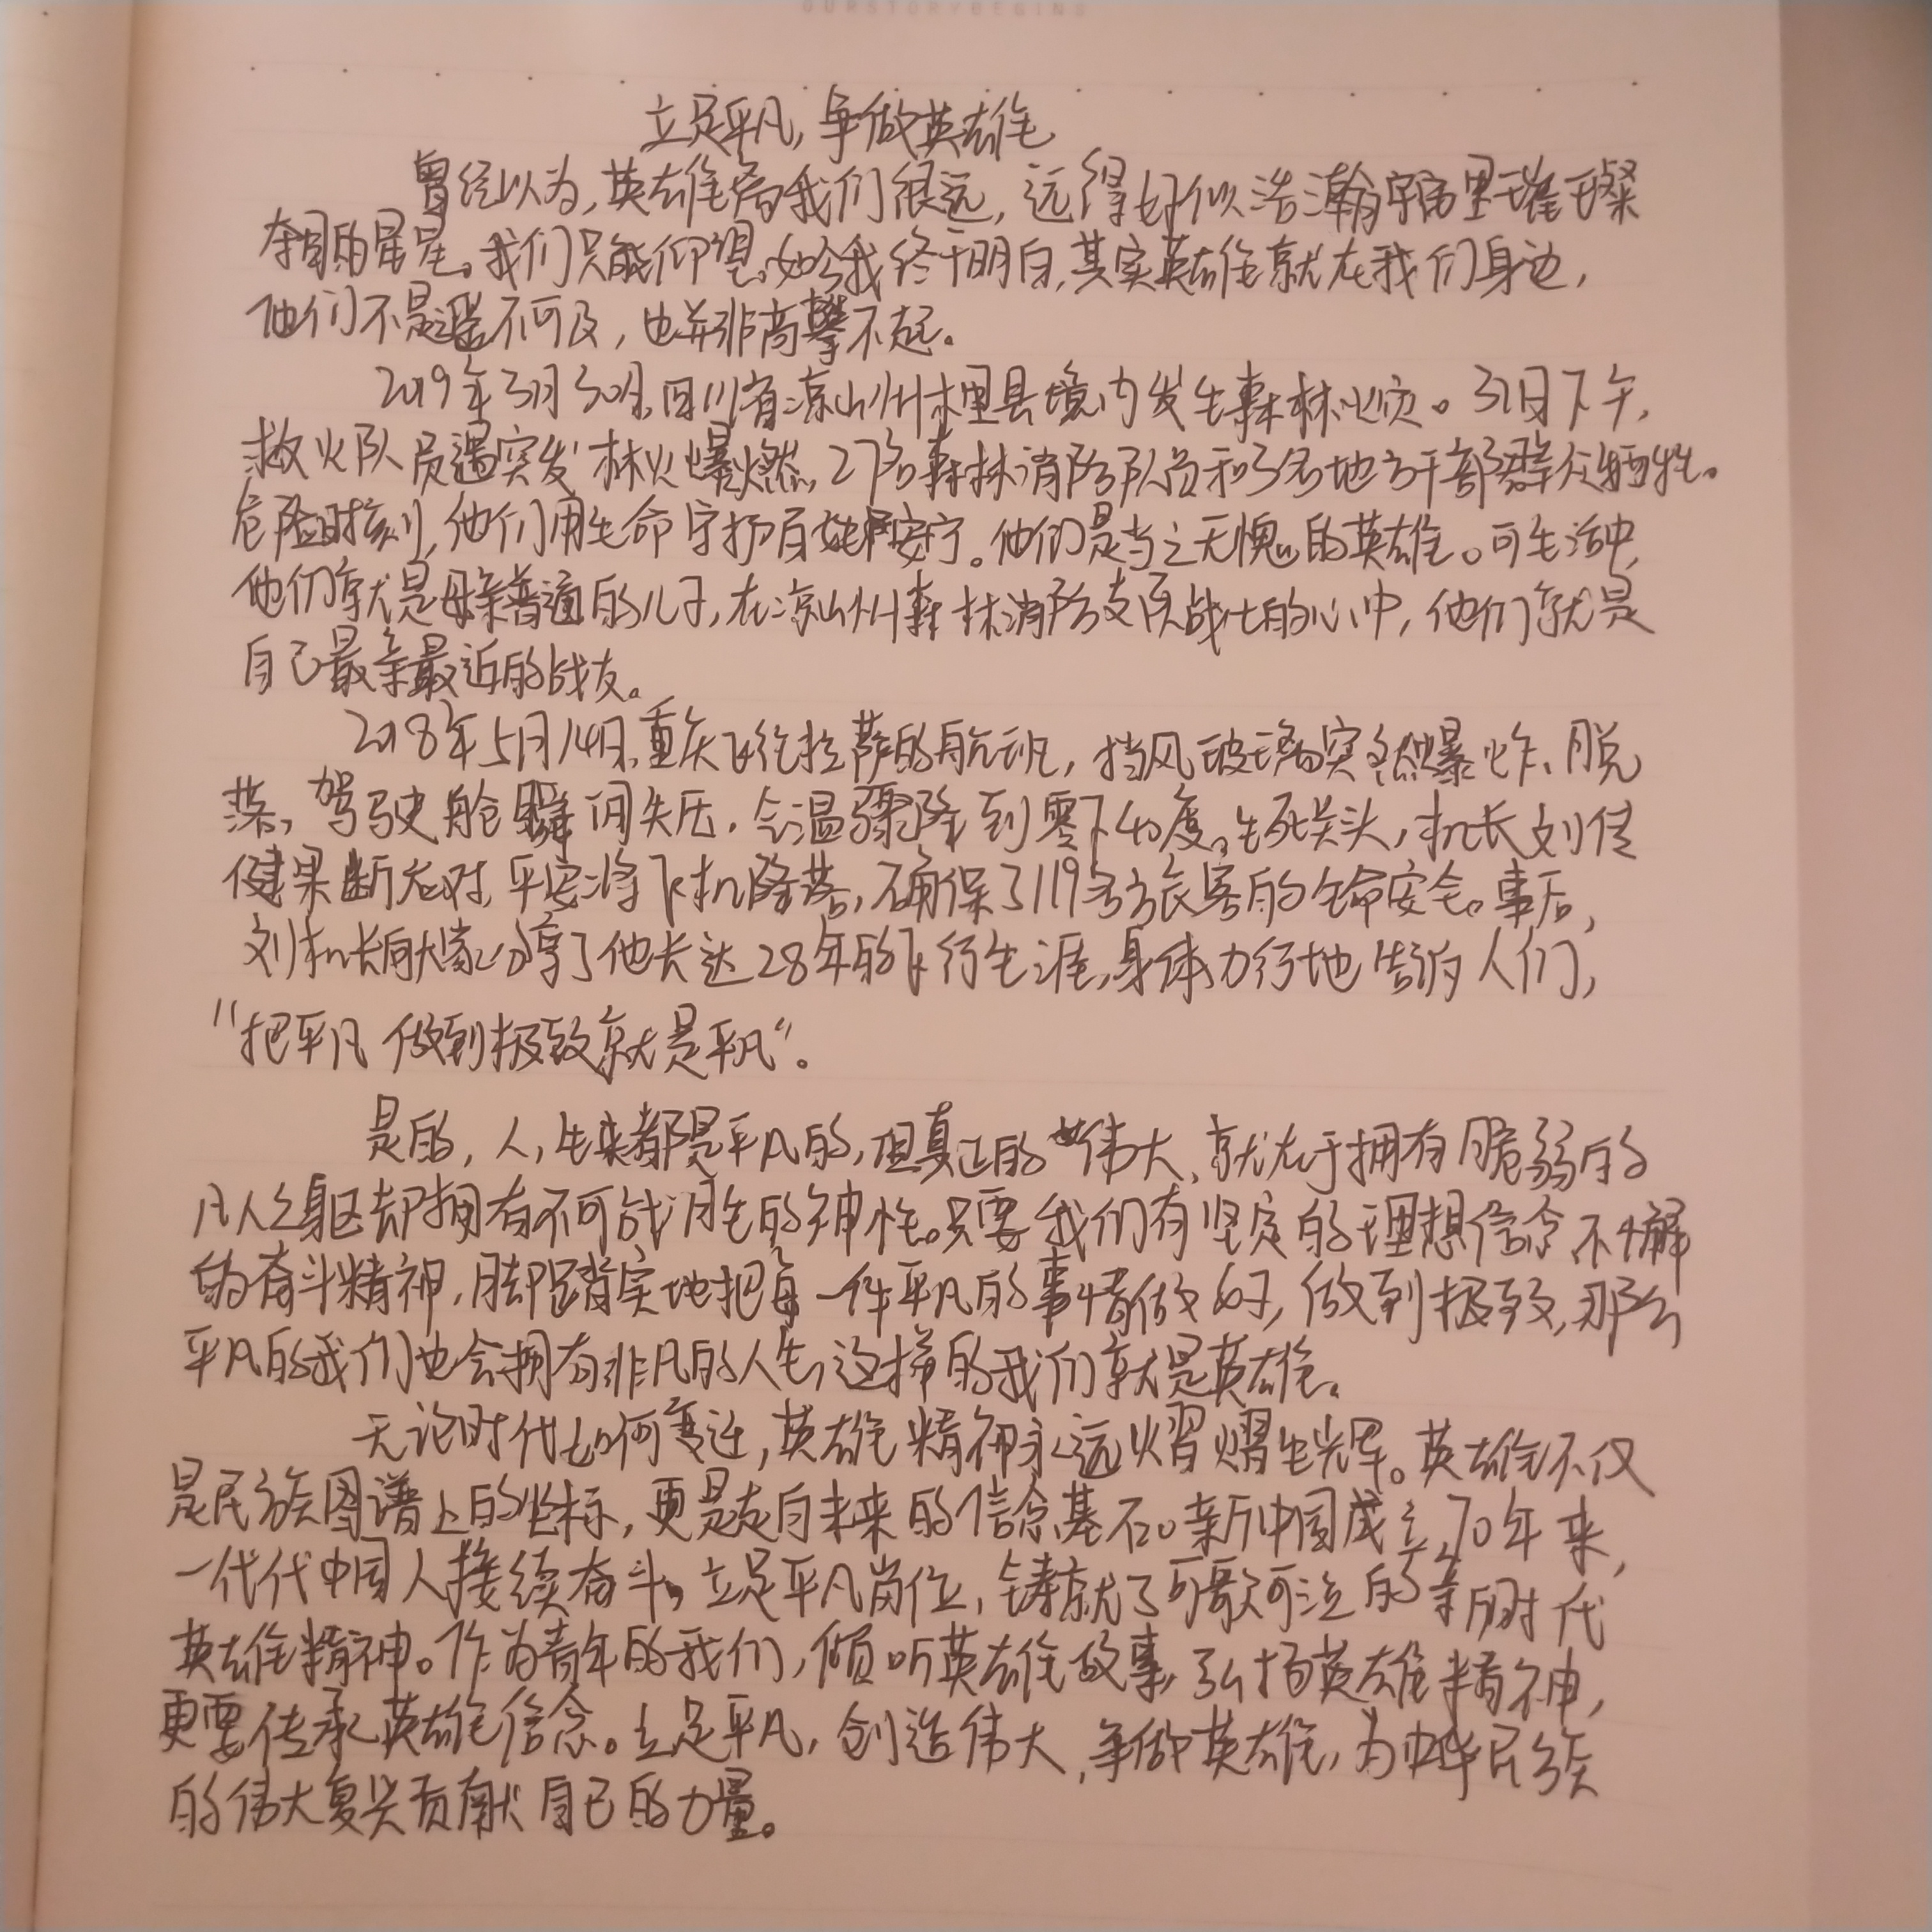 OURSTORYBEGING
立足平凡,争做英雄
曾经以为,英雄离我们很远,远得好似浩瀚宇宙里璀璨
夺目的星星。我们只能仰望。如今我终于明白,其实英雄就在我们身边,
他们不是遥不可及,也并非高攀不起。
2019年3月30日,四川省凉山州木里县境内发生森林火灾。31日下午,
救火队员遇突发林火爆燃,27名森林消防队员和3名地方干部群众牺牲。
危险时刻,他们用生命守护百姓安宁。他们是当之无愧的英雄。可生活中,
他们就是母亲普通的儿子,在凉山州森林消防支队战士的心中,他们就是
自己最亲最近的战友。
2018年5月14日,重庆飞往拉萨的航班,挡风玻璃突然爆炸、脱
落,驾驶舱瞬间失压,气温骤降到零下40度。生死关头,机长刘传
健果断应对,平安将飞机降落,确保了119名旅客的生命安全。事后,
刘机长向大家分享了他长达28年的飞行生涯,身体力行地告诉人们,
"把平凡做到极致就是平凡"。
是的,人,生来都是平凡的,但真正的伟大,就在于拥有脆弱的
凡人之躯却拥有不可战胜的神性。只要我们有坚定的理想信念,不懈
的奋斗精神,脚踏实地把每一件平凡的事情做好,做到极致,那么
平凡的我们也会拥有非凡的人生,这样的我们就是英雄。
无论时代如何变迁,英雄精神永远熠熠生辉。英雄不仅
是民族图谱上的坐标,更是走向未来的信念基石。新中国成立70年来,
一代代中国人接续奋斗,立足平凡岗位,铸就了可歌可泣的新时代
英雄精神。作为青年的我们,倾听英雄故事,弘扬英雄精神,
更要传承英雄信念。立足平凡,创造伟大,争做英雄,为中华民族
的伟大复兴贡献自己的力量。